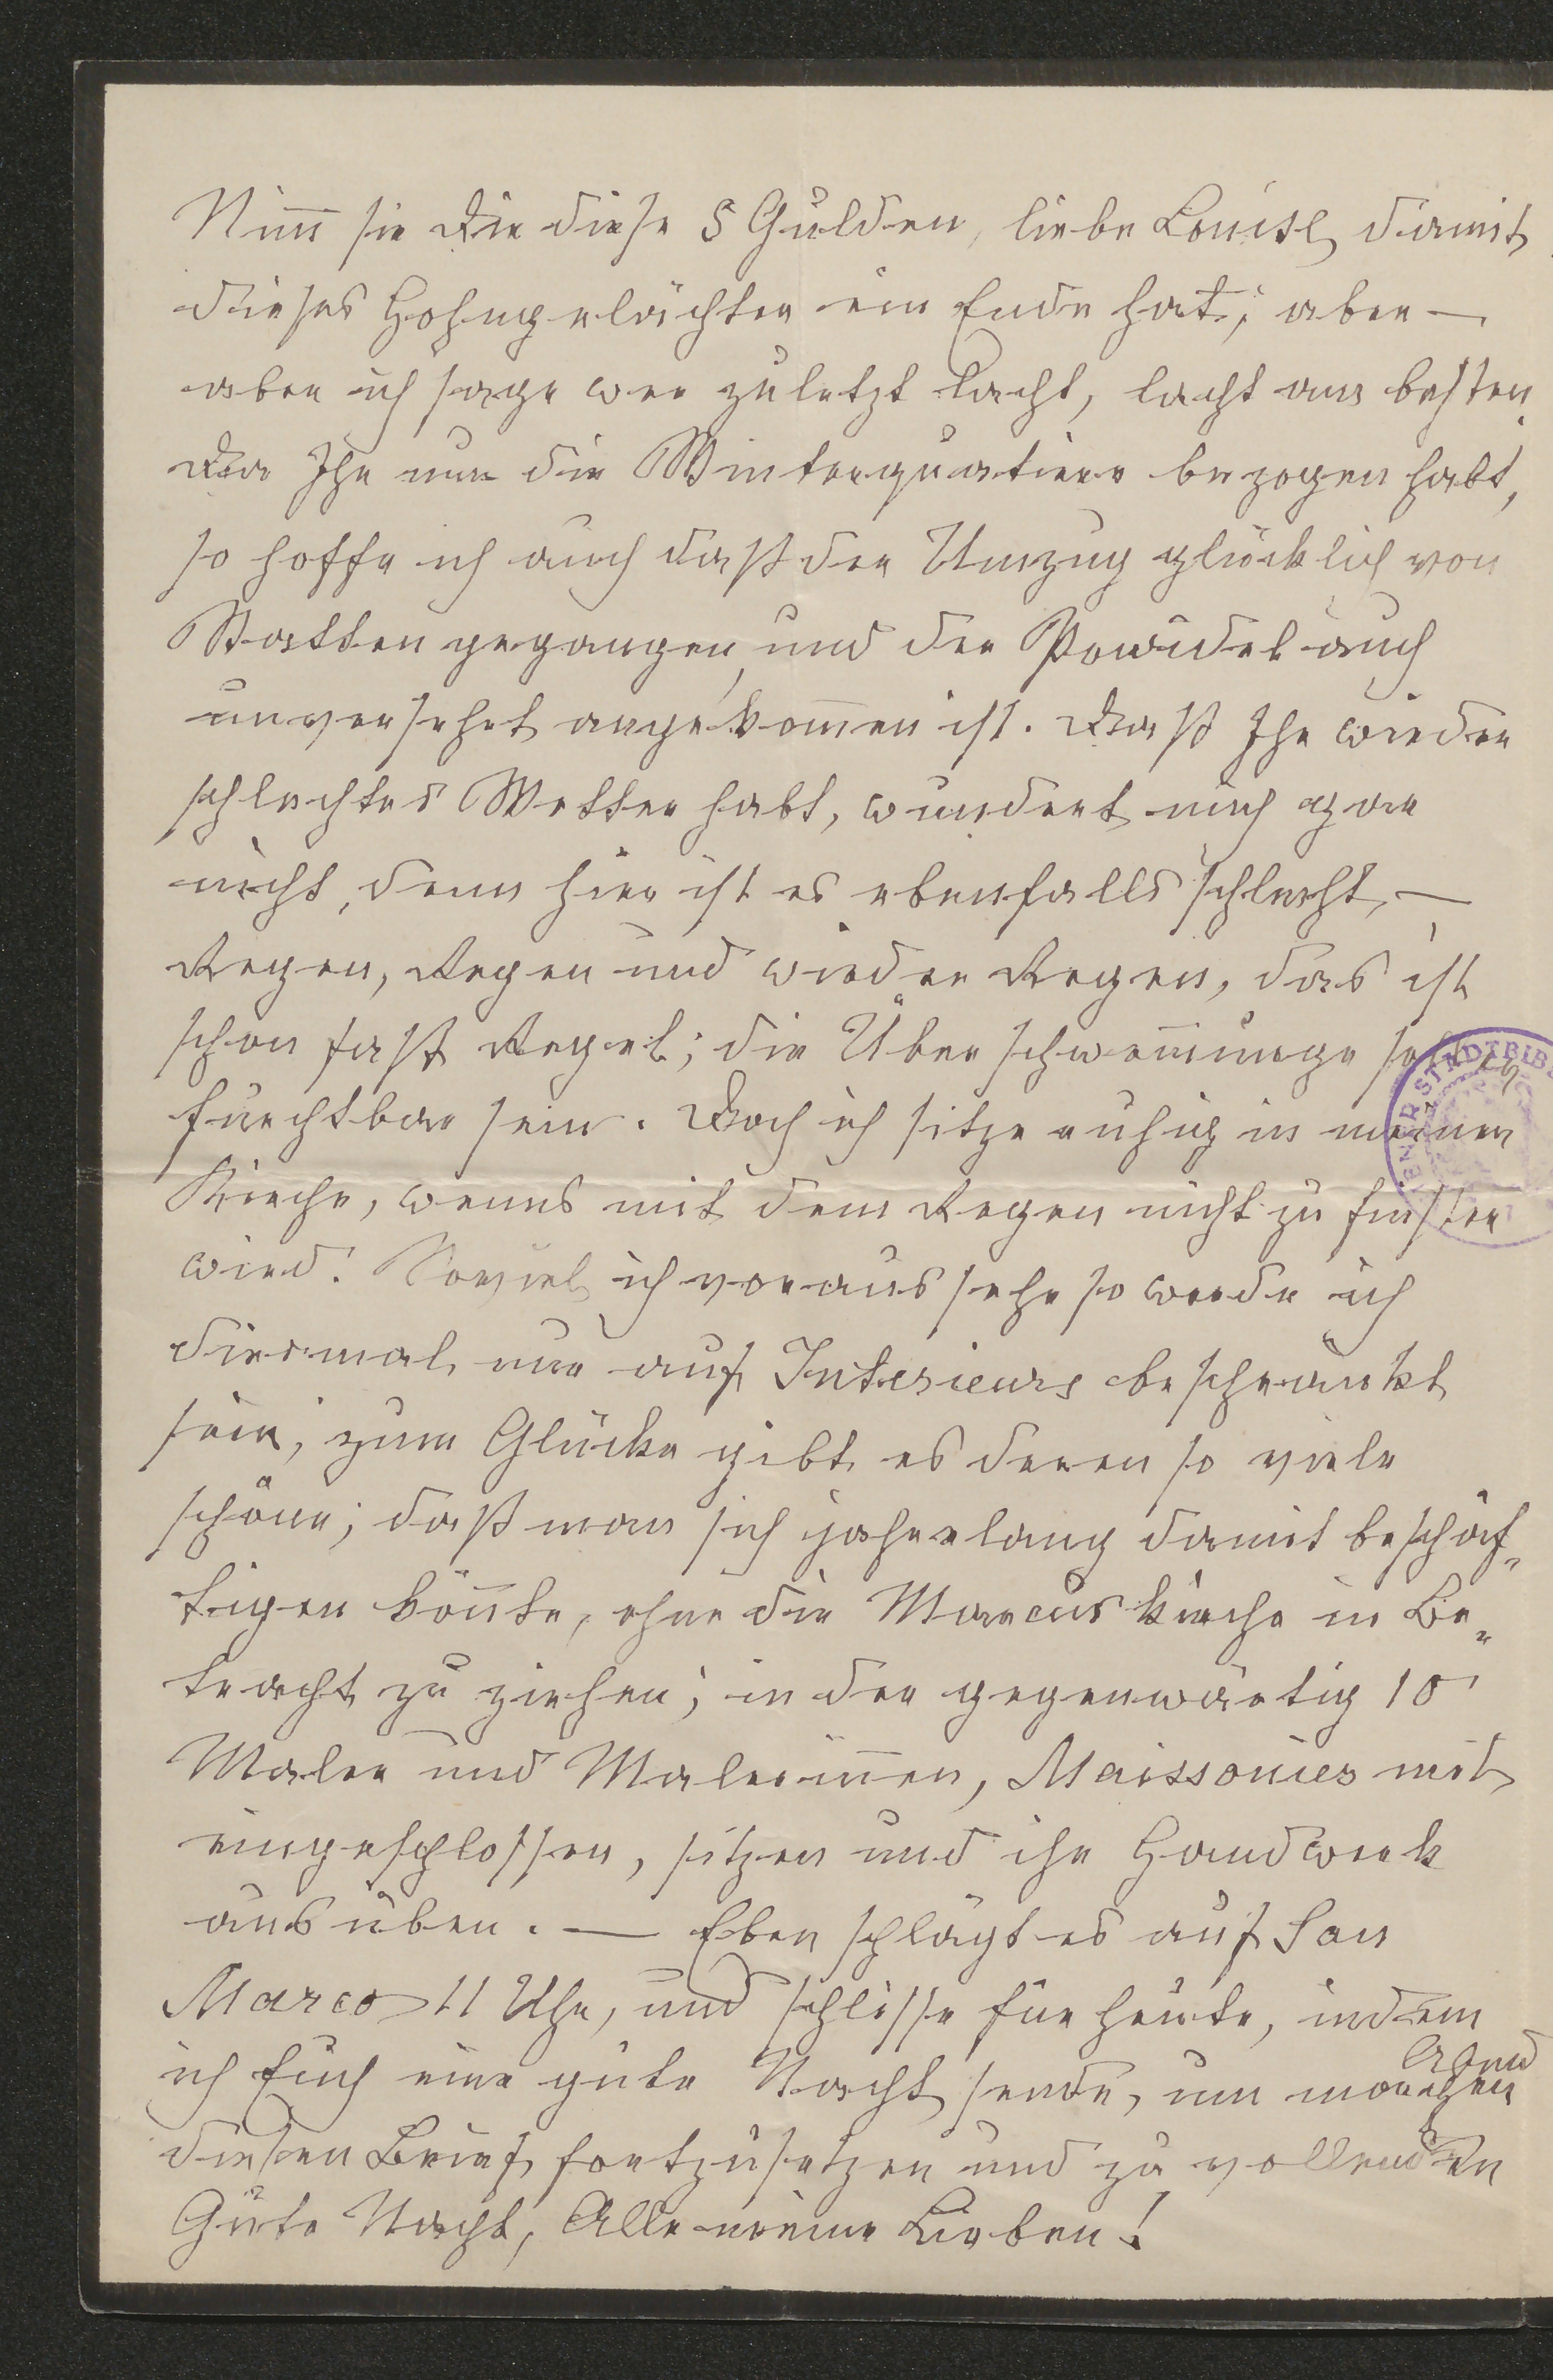 Nim̅ sie Dir diese 5 Gulden, liebe Louise, damit
dieses Hohngelächter ein Ende hat; aber —
aber ich sage wer zuletzt lacht, lacht am besten.
Da Ihr nun die Winterquartiere bezogen habt,
so hoffe ich auch daß der Umzug glücklich von
Statten gegangen, und der Powidel auch
unversehrt angekom̅en ist. Daß Ihr wieder
schlechtes Wetter habt, wundert mich gar
nicht, denn hier ist es ebenfalls schlecht, —
Regen, Regen und wieder Regen, das ist
schon fast Regel; die Überschwem̅unge sollen
furchtbar sein. Doch ich sitze ruhig in meiner
Kirche, wenns mit dem Regen nicht zu finster
wird. Soviel ich voraussehe so werde ich
diesmal nur auf Interieurs beschränkt
sein; zum Glücke gibt es deren so viele
schöne; daß man sich jahrelang damit beschäf„
tigen kön̅te, ohne die Marcuskirche in Be„
tracht zu ziehen; in der gegenwärtig 10
Maler und Malerin̅en, Maissonier mit
eingeschlossen, sitzen und ihr Handwerk
ausüben. — Eben schlägt es auf San
Marco 11 Uhr, und schlisse für heute, indem
ich Euch eine gute Nacht sende, um morgen Abend
diesen Brief fortzusetzen und zu vollenden
Gute Nacht, Alle meine Lieben!
WIENER STADTBIB